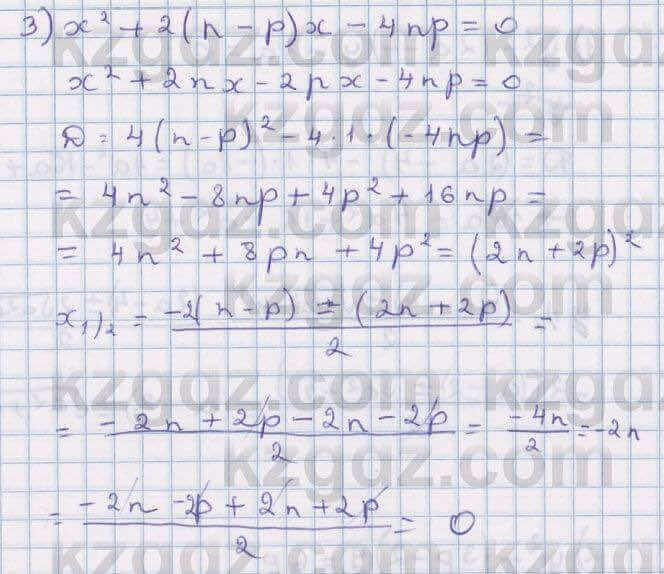 3) x² + 2(n - p)x - 4np = 0
x² + 2nx - 2px - 4np = 0
D = 4(n-p)² - 4·1·(-4np) =
= 4n² - 8np + 4p² + 16np =
= 4n² + 8pn + 4p² = (2n + 2p)²
x₁,₂ = (-2(n - p) ± (2n + 2p))/2 =
= (-2n + 2p - 2n - 2p)/2 = -4n/2 = -2n
= (-2n - 2p + 2n + 2p)/2 = 0
kzgdz.com